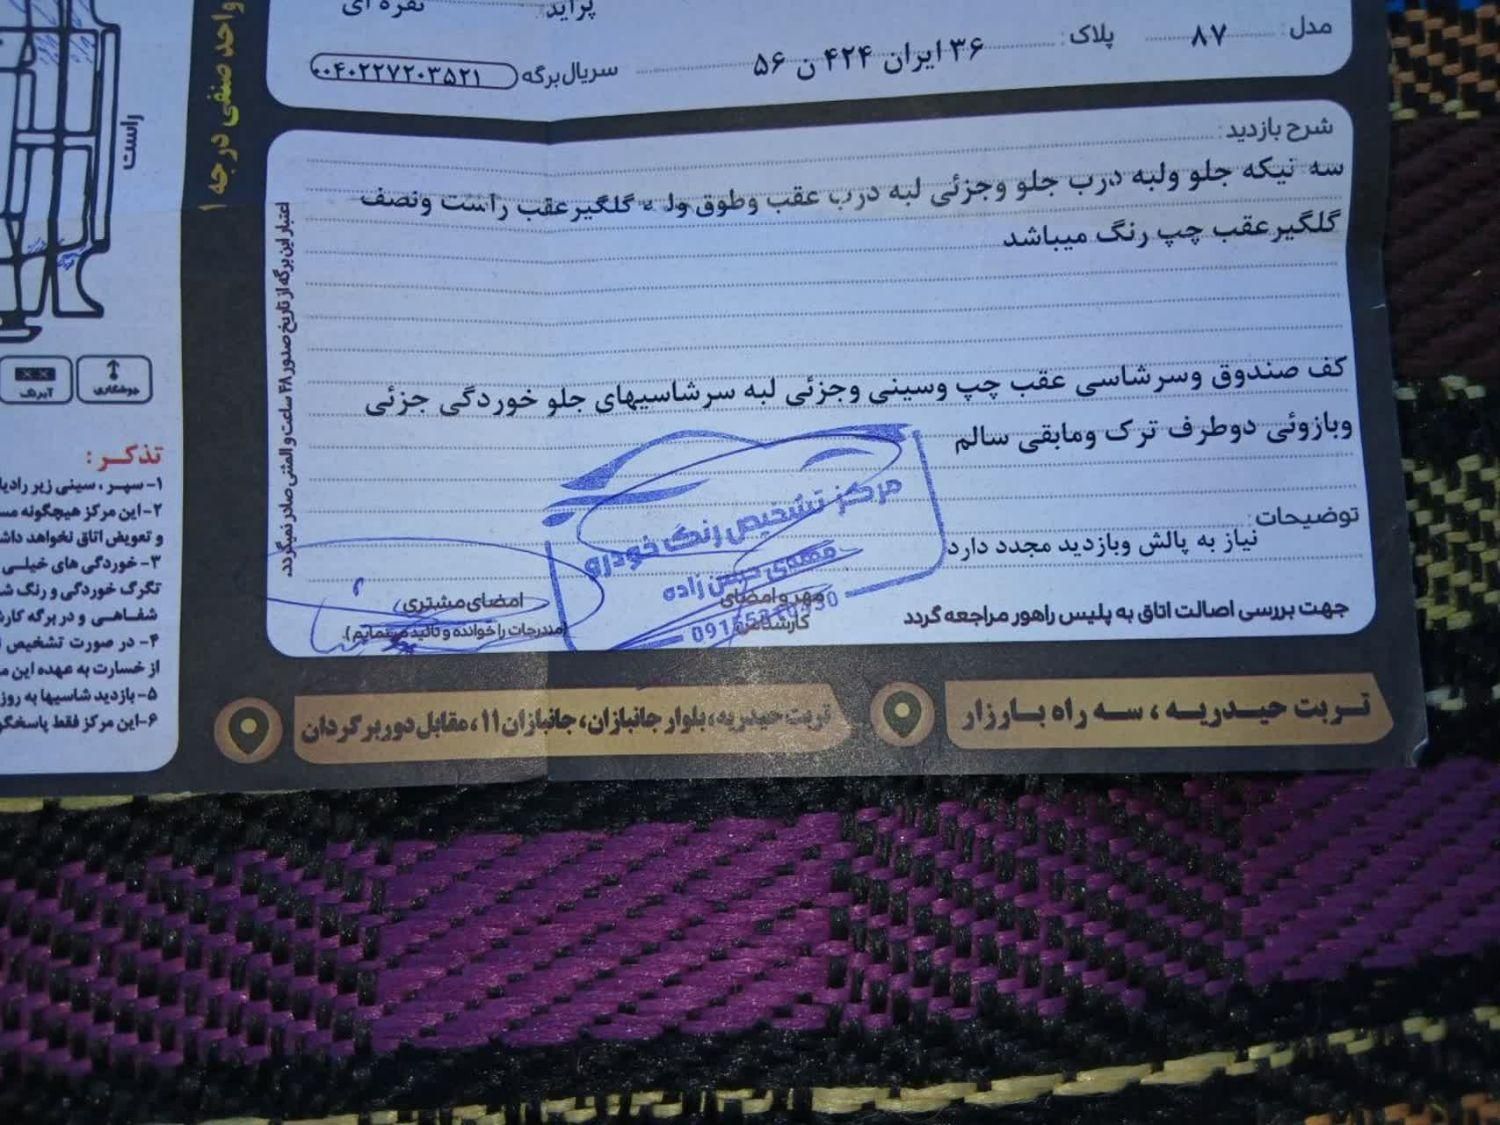 پراید: نقره ای
مدل: ۸۷ پلاک: ۳۶ ایران ۴۲۴ ن ۵۶
سریال برگه ۰۰۴۰۲۲۷۲۰۳۵۲۱
شرح بازدید:
سه تیکه جلو ولبه درب جلو وجزئی لبه درب عقب وطوق ولبه گلگیرعقب راست ونصف
گلگیرعقب چپ رنگ میباشد
کف صندوق وسرشاسی عقب چپ وسینی وجزئی لبه سرشاسیهای جلو خوردگی جزئی
وبازوئی دوطرف ترک ومابقی سالم
توضیحات:
نیاز به پالش وبازدید مجدد دارد
جهت بررسی اصالت اتاق به پلیس راهور مراجعه گردد
مهر و امضای
کارشناس
امضای مشتری
(مندرجات را خوانده و تائید مینمایم).
مرکز تشخیص رنگ خودرو
اعتبار این برگه از تاریخ صدور ۴۸ ساعت و المثنی صادر نمیگردد.
تربت حیدریه ، سه راه بارزار
تربت حیدریه، بلوار جانبازان، جانبازان ۱۱، مقابل دوربرگردان
واحد صنفی درجه ۱
راست
جوشکاری
آبرنگ
تذکر:
۱- سپر ، سینی زیر رادیا
۲- این مرکز هیچگونه مس
و تعویض اتاق نخواهد داش
۳- خوردگی های خیلی
تگرگ خوردگی و رنگ ش
شفاهی و در برگه کار
۴- در صورت تشخیص
از خسارت به عهده این م
۵- بازدید شاسیها به روز
۶- این مرکز فقط پاسخگو